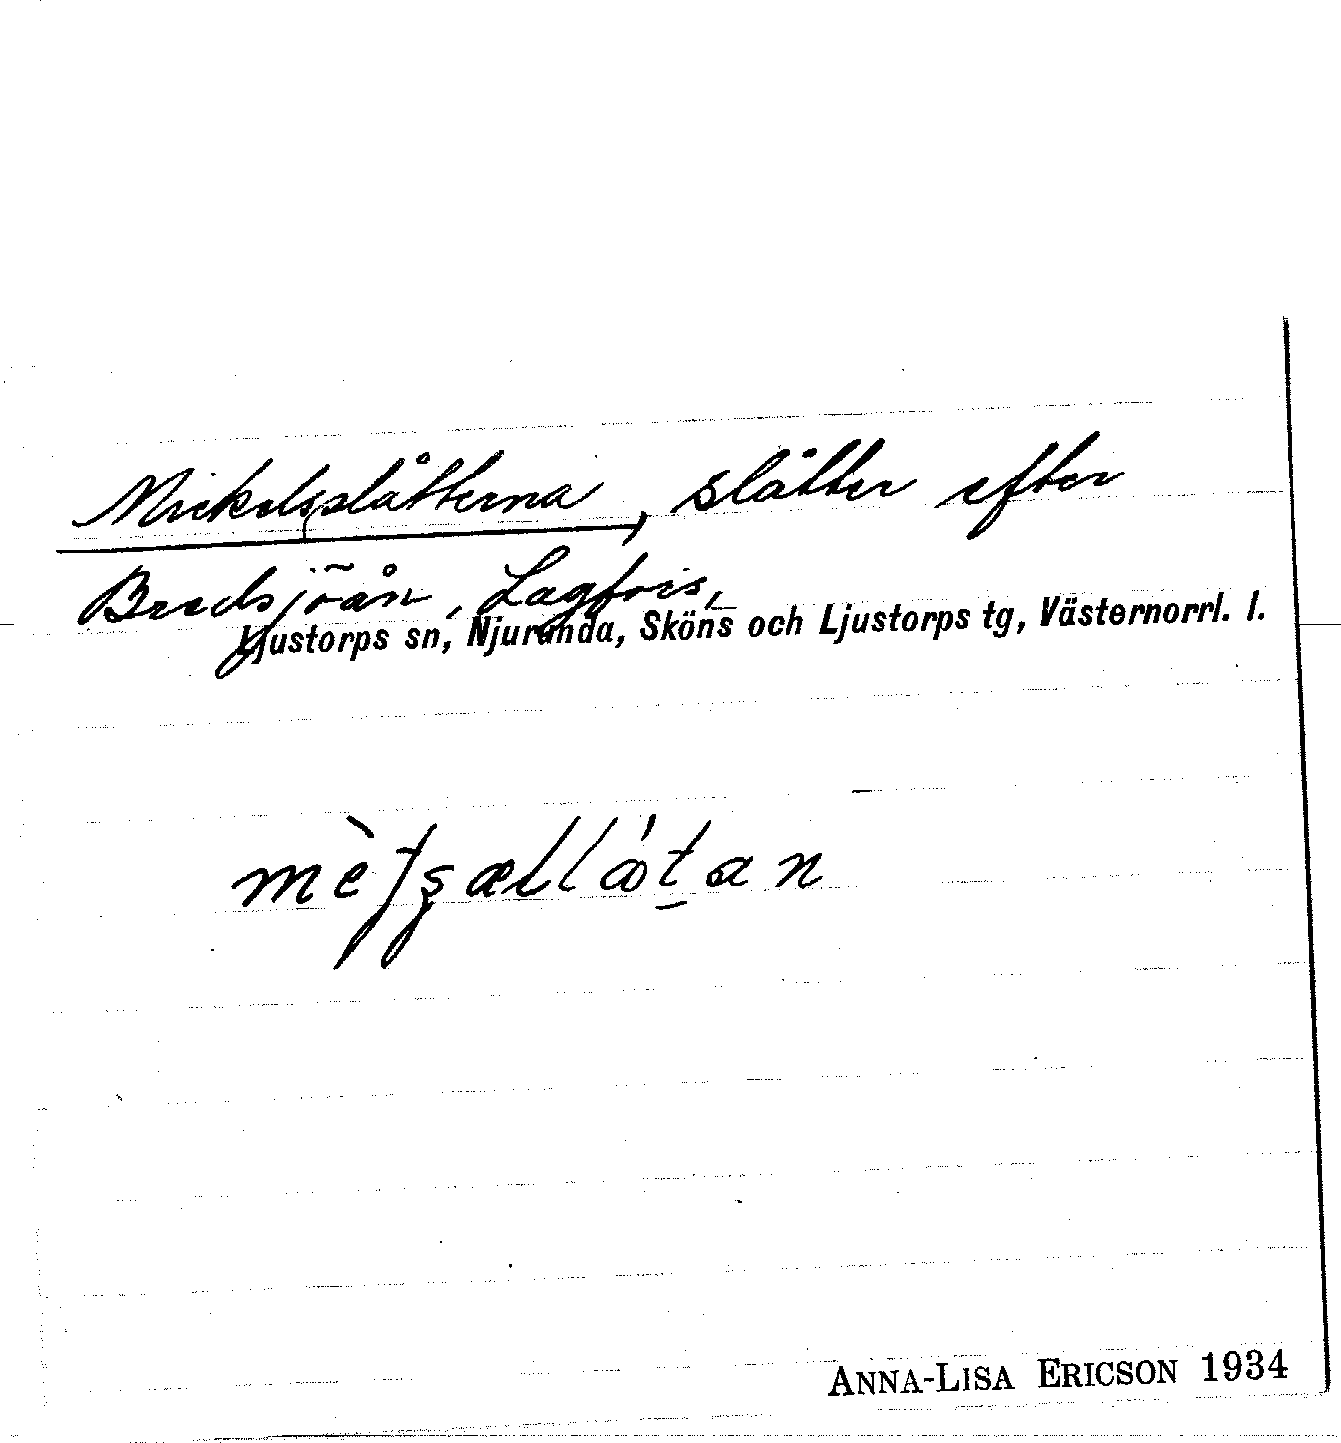 Mickelsslåtterna, slåtter efter
Bredsjöån, Lagfors,
Ljustorps sn, Njurunda, Sköns och Ljustorps tg, Västernorrl. l.
ANNA-LISA ERICSON 1934